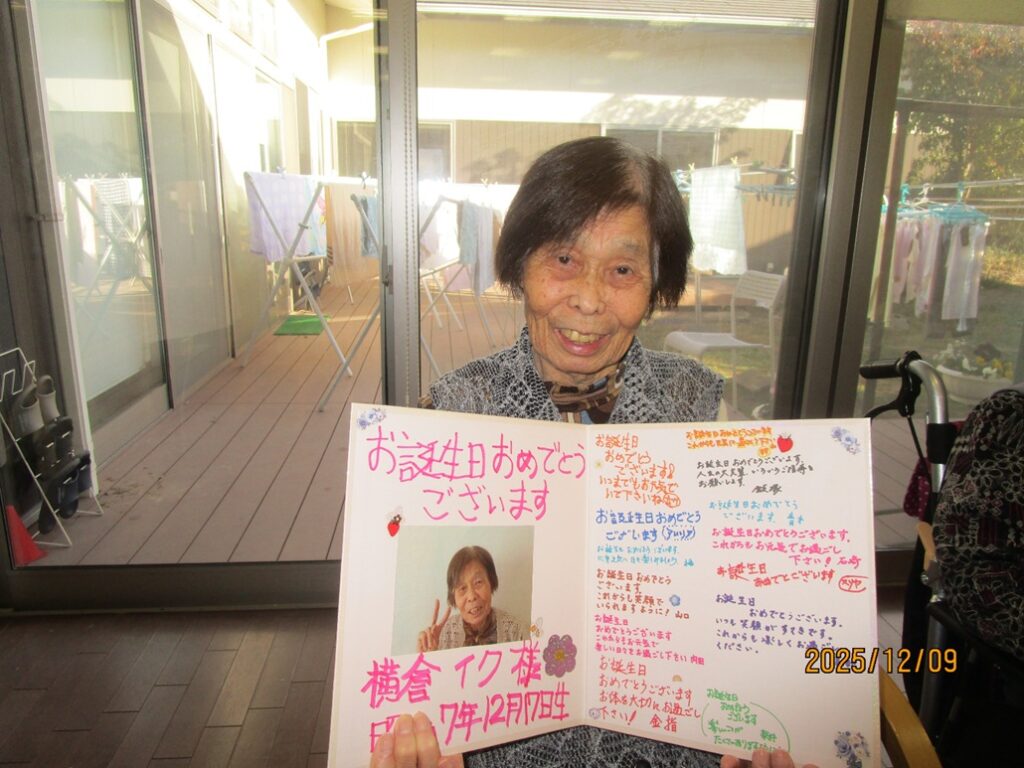 お誕生日おめでとう
ございます
横倉 イク 様
7年12月17日生
お誕生日
おめでとう
ございます!
いつまでもお元気で
いて下さいね
お誕生日おめでとう
ございます
お誕生日おめでとう
ございます。
これからも笑顔で
いられますように! 山口
お誕生日
おめでとうございます
これからもお元気で
楽しい日々をお過ごし下さい 内田
お誕生日
おめでとうございます
お体を大切にお過ごし
下さい! 金指
お誕生日おめでとうございます
お誕生日おめでとうございます。
人生の大先輩、いろいろご指導を
お願いします。
お誕生日おめでとう
ございます
お誕生日おめでとうございます。
これからもお元気でお過ごし
下さい! 石崎
お誕生日
おめでとございます
お誕生日
おめでとうございます。
いつも笑顔がすてきです。
これからも楽しくお過ごし
ください。
お誕生日
おめでとう
ございます
2025/12/09